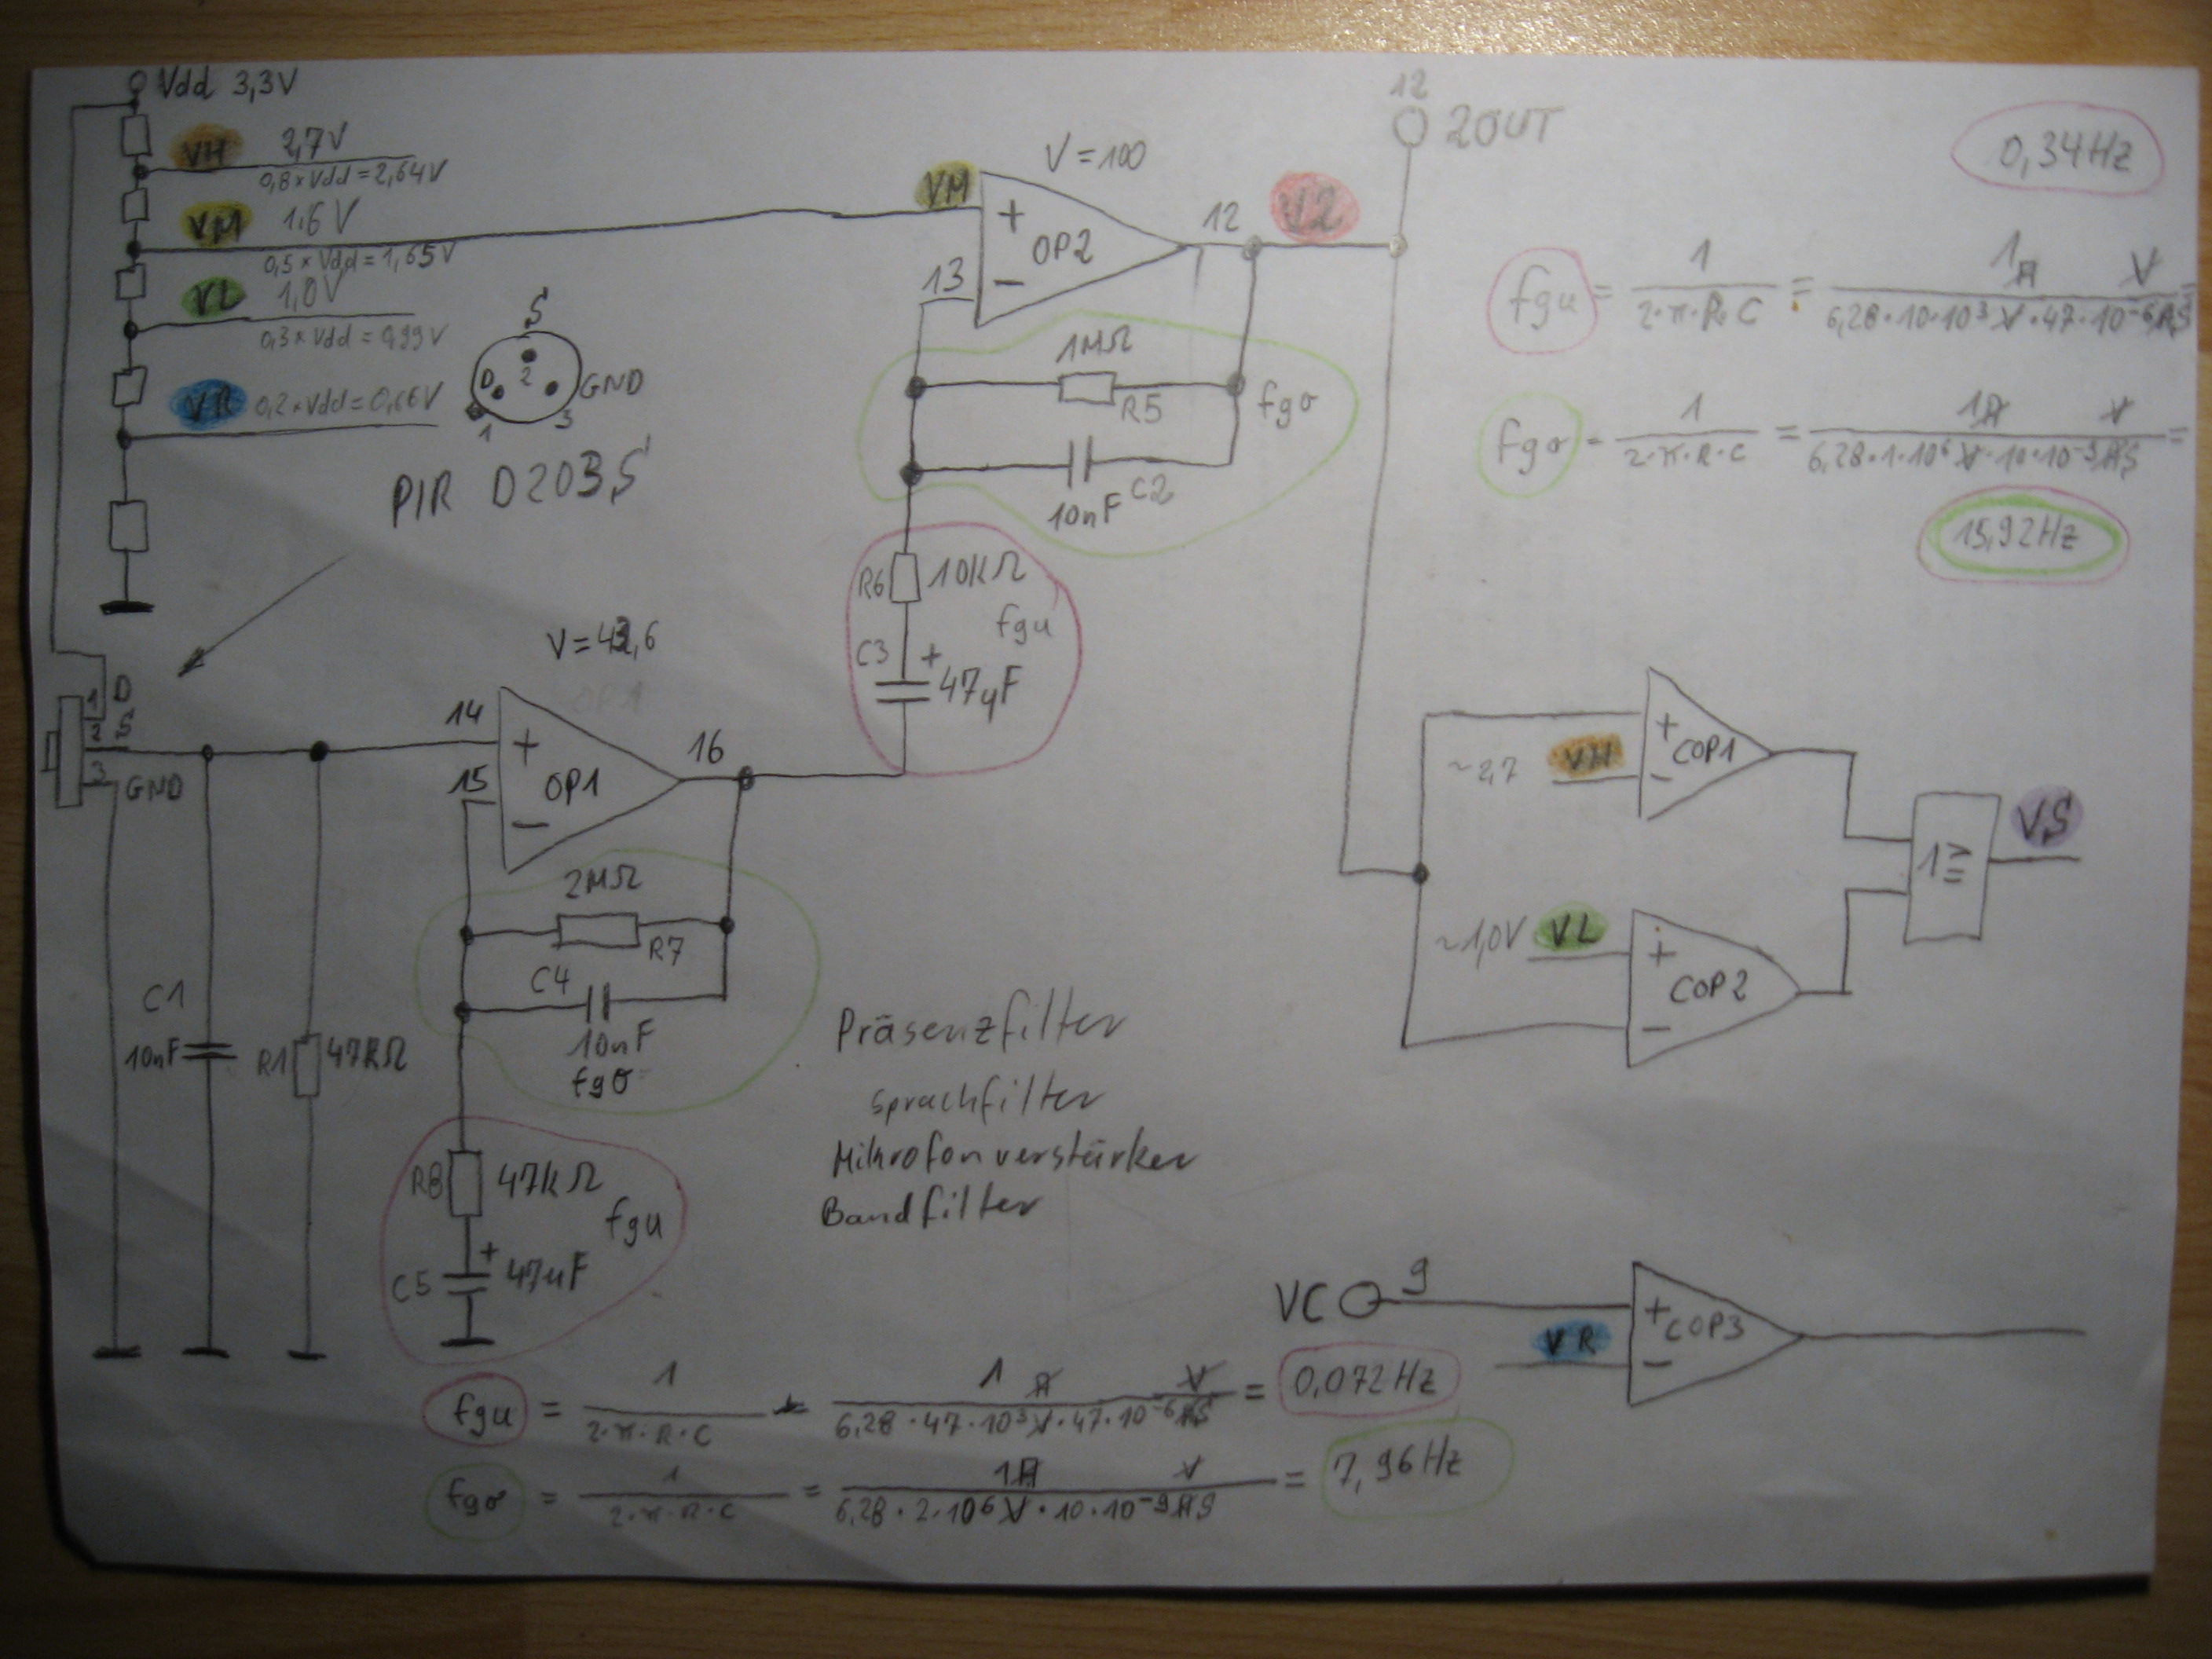 Vdd 3,3V
VH 2,7V
0,8×Vdd=2,64V
VM 1,6V
0,5×Vdd=1,65V
VL 1,0V
0,3×Vdd=0,99V
VR 0,2×Vdd=0,66V
S
D 2 GND
1 3
PIR D203S
V=100
VM + OP2 12 V2
13 −
12
2OUT
0,34Hz
fgu = 1 / 2·π·R·C = 1A V / 6,28·10·10³V·47·10⁻⁶AS =
fgo = 1 / 2·π·R·C = 1A V / 6,28·1·10⁶V·10·10⁻⁹AS =
15,92Hz
1MΩ
R5
fgo
C2
10nF
R6 10KΩ
fgu
C3 +
47µF
1 D
2 S
3 GND
14 + OP1 16
15 −
2MΩ
R7
C4
10nF
fgo
C1
10nF
R1 47KΩ
R8 47KΩ
fgu
C5 + 47µF
Präsenzfilter
Sprachfilter
Mikrofonverstärker
Bandfilter
~2,7 VH + − COP1
1≥ VS
~1,0V VL + − COP2
VC 9 + COP3
VR −
fgu = 1 / 2·π·R·C = 1A V / 6,28·47·10³V·47·10⁻⁶AS = 0,072Hz
fgo = 1 / 2·π·R·C = 1A V / 6,28·2·10⁶V·10·10⁻⁹AS = 7,96Hz